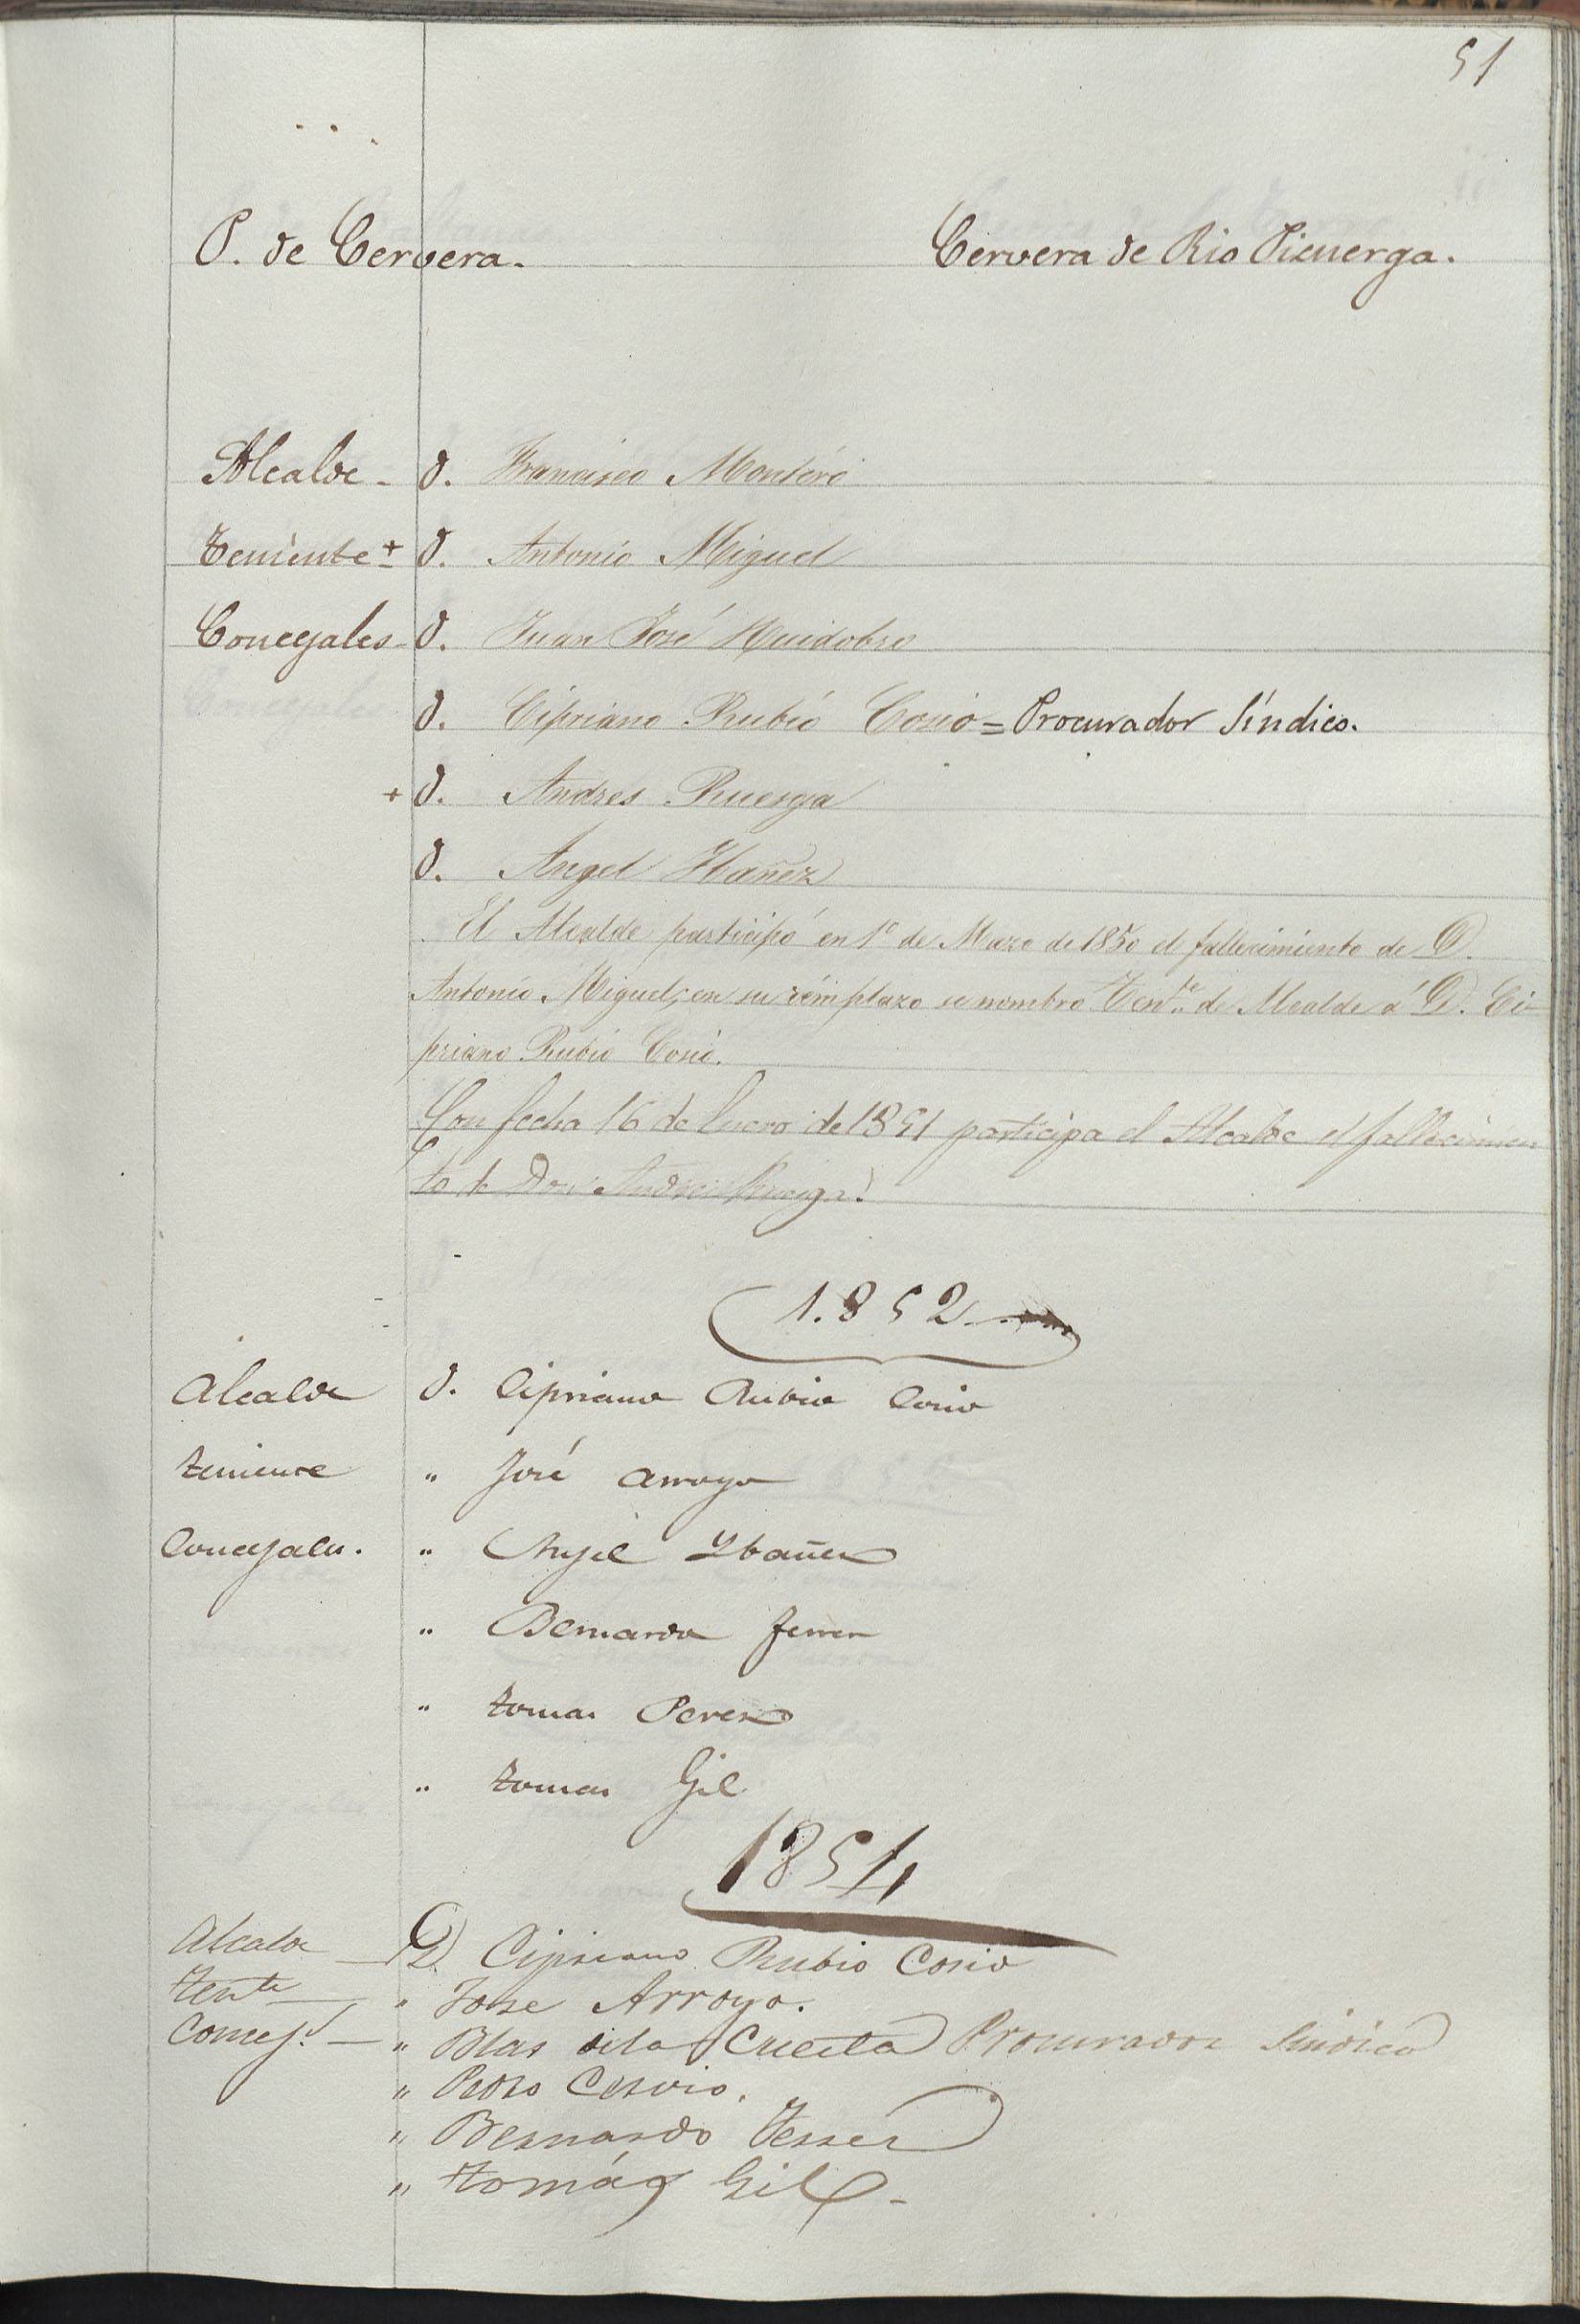 51
P. de Cervera.
Cervera de Rio Pisuerga.
Alcalde - D. Francisco Montero
Teniente + D. Antonio Miguel
Concejales - D. Juan José Huidobro
D. Cipriano Rubio Cosio = Procurador Síndico.
+ D. Andres Ruesga
D. Angel Ibañez
El Alcalde participó en 1º de Marzo de 1850 el fallecimiento de D.
Antonio Miguel; en su remplazo se nombro Tente. de Alcalde á D. Ci-
priano Rubio Cosio.
Con fecha 16 de Enero de 1851 participa el Alcalde el fallecimien
to de Don Andres Ruesga.
1.852
Alcalde D. Cipriano Rubio Cosio
Teniente " José Arroyo
Concejales. " Anjel Ybañez
" Bernardo Ferrer
" Tomas Perez
" Tomas Gil
1854
Alcalde — D Cipriano Rubio Cosio
Tente — " Jose Arroyo.
Concej.s — " Blas de la Cuesta Procurador Sindico
" Pedro Cosio.
" Bernardo Ferrer
" Tomás Gil -